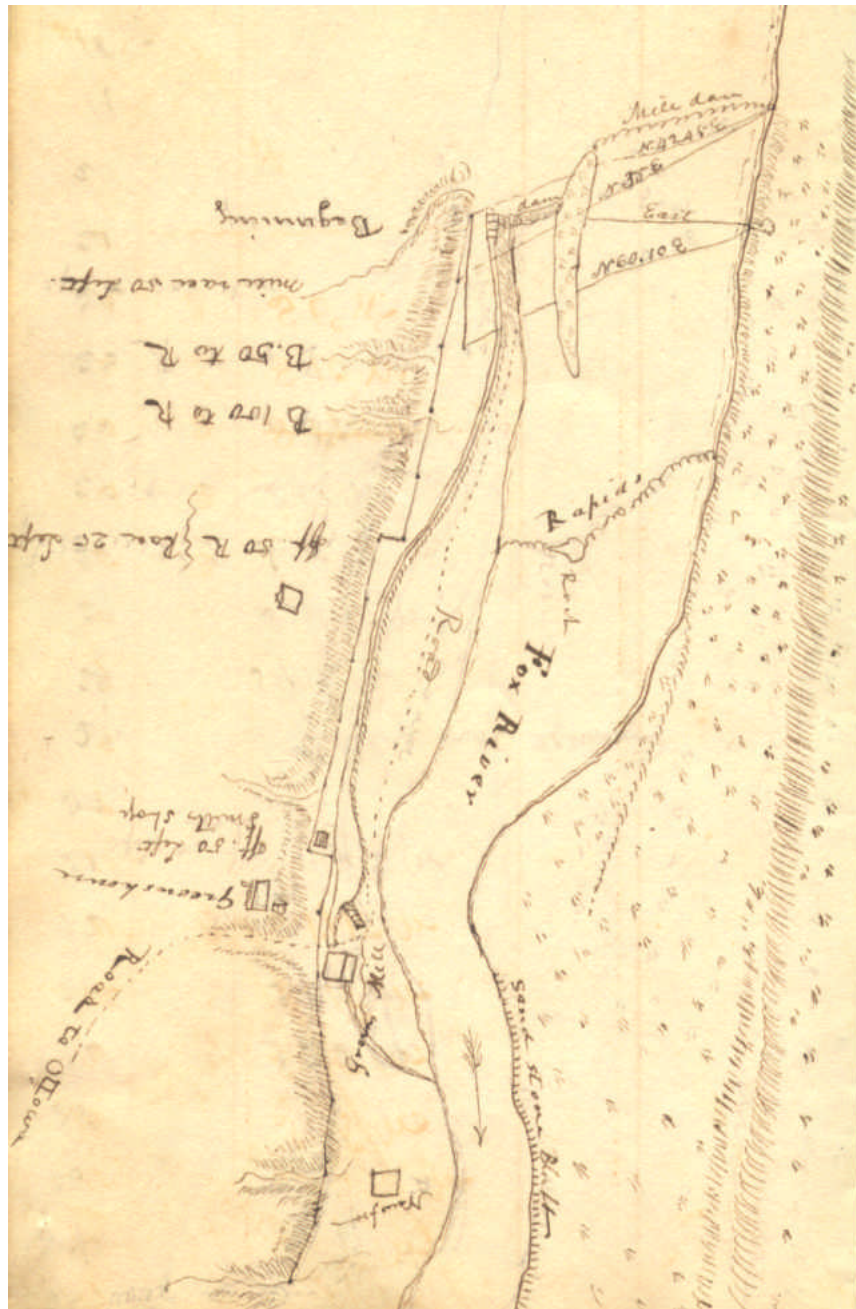 Mill dam
N.42.45E
N.35E
dam
East
N60°10E
Beginning
mill race 50 left.
B. 50 to R
B 100 to R
off. 50 R Race 25 left
Rapids
Rock
Road
Fox River
off. 50 left
Smith shop
Greens house
Road to Ottowa
Mill
Sand stone Bluff